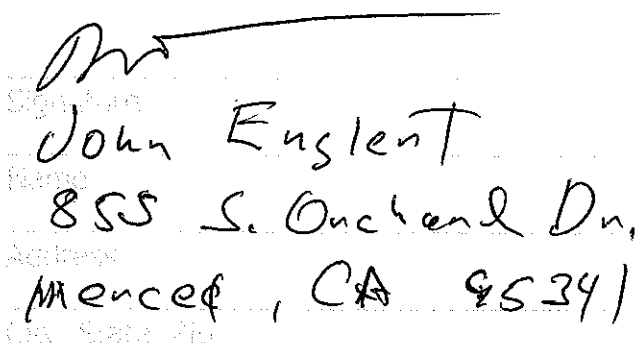 Signature
John Englert
Name
855 S. Orchard Dr.
Address
Merced, CA 95341
City, State, Zip